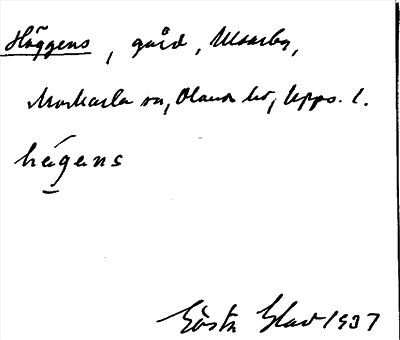 Häggens, gård, Ulvarby,
Morkarla sn, Olands hd, Upps. l.
hägens
Gösta Glad 1937